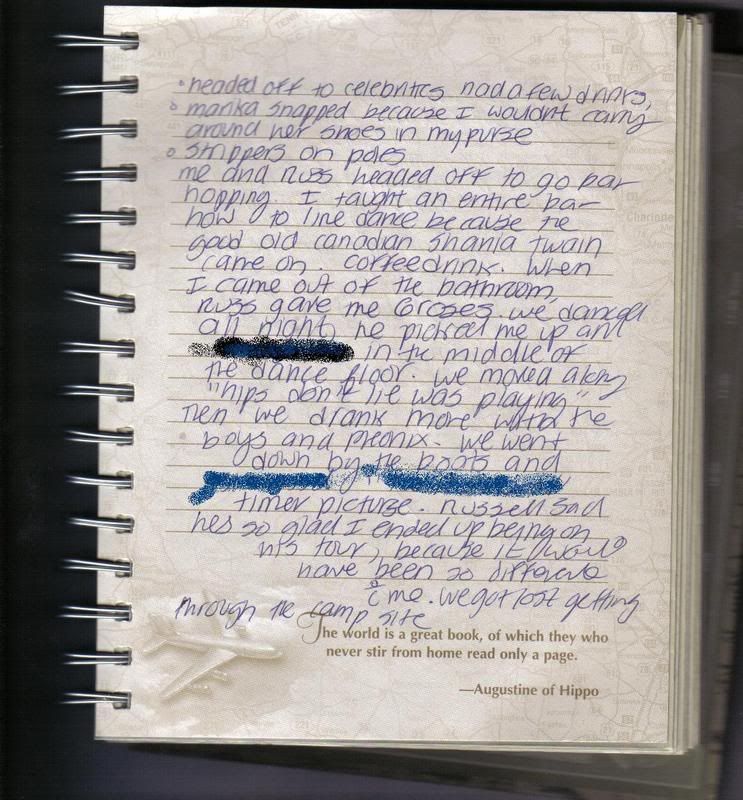 • headed off to celebrities had a few drinks,
• marika snapped because I wouldnt carry
around her shoes in my purse
• Strippers on poles
me and russ headed off to go bar
hopping. I taught an entire bar
how to line dance because the
good old canadian Shania twain
came on. coffee drink. When
I came out of the bathroom,
russ gave me 6 roses. we danced
all night, he picked me up and
in the middle of
the dance floor. We moved along
"hips don't lie was playing"
Then we drank more with the
boys and pheonix. We went
down by the boats and
timer picture. Russell said
hes so glad I ended up being on
his tour, because it would
have been so different
c̊ me. We got lost getting
through the camp site
The world is a great book, of which they who
never stir from home read only a page.
—Augustine of Hippo